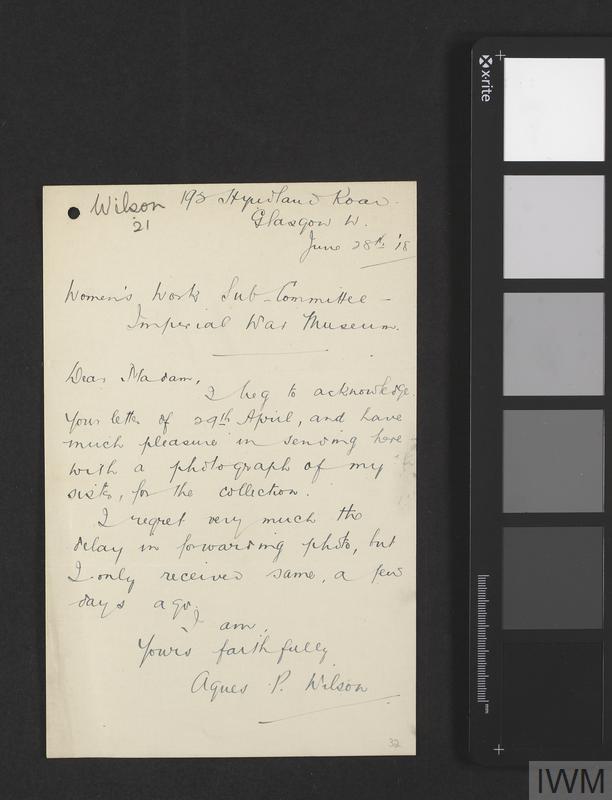 Wilson 193 Hyndland Road.
21
Glasgow W.
June 28th '18
Women's Work Sub-Committee -
Imperial War Museum.
Dear Madam,
I beg to acknowledge
your letter of 29th April, and have
much pleasure in sending here
with a photograph of my
sister, for the collection.
I regret very much the
delay in forwarding photo, but
I only received same, a few
days ago.
I am,
Yours faithfully
Agnes P. Wilson
32
x-rite
mm
IWM